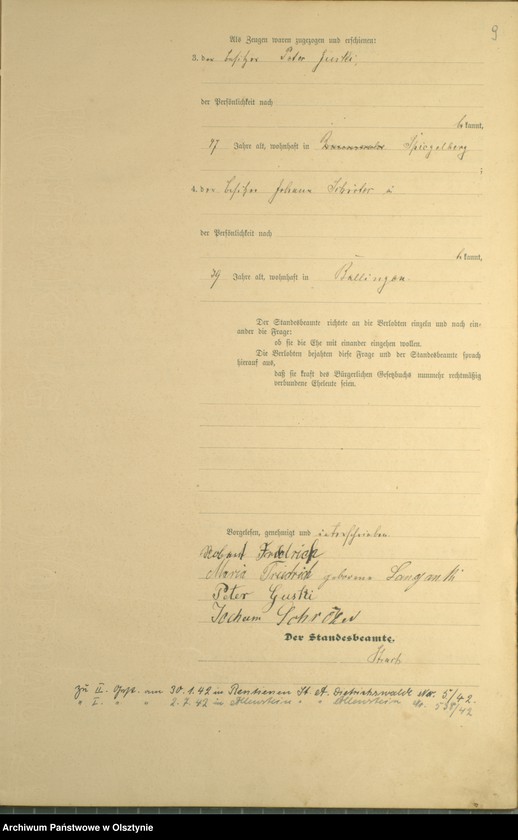 9
Als Zeugen waren zugezogen und erschienen:
3. der Besitzer Peter Guski,
der Persönlichkeit nach
bekannt,
47 Jahre alt, wohnhaft in Spiegelberg
;
4. der Besitzer Johann Schröter
der Persönlichkeit nach
bekannt,
39 Jahre alt, wohnhaft in Ballingen.
Der Standesbeamte richtete an die Verlobten einzeln und nach ein-
ander die Frage:
ob sie die Ehe mit einander eingehen wollen.
Die Verlobten bejahten diese Frage und der Standesbeamte sprach
hierauf aus,
daß sie kraft des Bürgerlichen Gesetzbuchs nunmehr rechtmäßig
verbundene Eheleute seien.
Vorgelesen, genehmigt und unterschrieben
Friedrich
Maria Friedrich geborene Langanki
Peter Guski
Schröter
Der Standesbeamte.
zu II. Gest. am 30.1.42 in Rentienen St. A. Dietrichswalde Nr. 5/42.
" I. " " 2.7.42 in Allenstein " " Allenstein Nr. 538/42
Archiwum Państwowe w Olsztynie